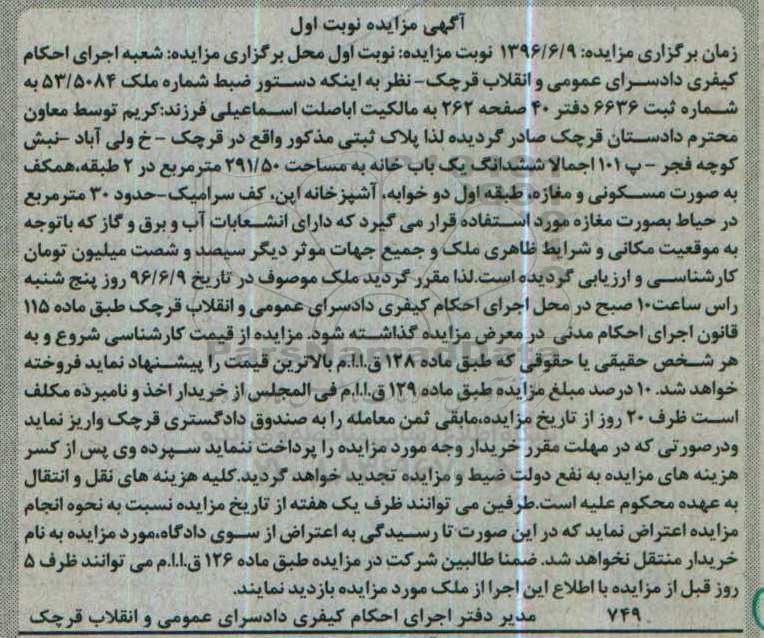 آگهی مزایده نوبت اول
زمان برگزاری مزایده: ۱۳۹۶/۶/۹ نوبت مزایده: نوبت اول محل برگزاری مزایده: شعبه اجرای احکام
کیفری دادسرای عمومی و انقلاب قرچک- نظر به اینکه دستور ضبط شماره ملک ۵۳/۵۰۸۴ به
شماره ثبت ۶۶۳۶ دفتر ۴۰ صفحه ۲۶۲ به مالکیت اباصلت اسماعیلی فرزند:کریم توسط معاون
محترم دادستان قرچک صادر گردیده لذا پلاک ثبتی مذکور واقع در قرچک - خ ولی آباد -نبش
کوچه فجر - پ ۱۰۱ اجمالا ششدانگ یک باب خانه به مساحت ۲۹۱/۵۰ مترمربع در ۲ طبقه،همکف
به صورت مسکونی و مغازه، طبقه اول دو خوابه، آشپزخانه اپن، کف سرامیک-حدود ۳۰ مترمربع
در حیاط بصورت مغازه مورد استفاده قرار می گیرد که دارای انشعابات آب و برق و گاز که باتوجه
به موقعیت مکانی و شرایط ظاهری ملک و جمیع جهات موثر دیگر سیصد و شصت میلیون تومان
کارشناسی و ارزیابی گردیده است.لذا مقرر گردید ملک موصوف در تاریخ ۹۶/۶/۹ روز پنج شنبه
راس ساعت۱۰ صبح در محل اجرای احکام کیفری دادسرای عمومی و انقلاب قرچک طبق ماده ۱۱۵
قانون اجرای احکام مدنی در معرض مزایده گذاشته شود. مزایده از قیمت کارشناسی شروع و به
هر شخص حقیقی یا حقوقی که طبق ماده ۱۲۸ ق.ا.ا.م بالاترین قیمت را پیشنهاد نماید فروخته
خواهد شد. ۱۰ درصد مبلغ مزایده طبق ماده ۱۲۹ ق.ا.ا.م فی المجلس از خریدار اخذ و نامبرده مکلف
است ظرف ۲۰ روز از تاریخ مزایده،مابقی ثمن معامله را به صندوق دادگستری قرچک واریز نماید
ودرصورتی که در مهلت مقرر خریدار وجه مورد مزایده را پرداخت ننماید سپرده وی پس از کسر
هزینه های مزایده به نفع دولت ضبط و مزایده تجدید خواهد گردید.کلیه هزینه های نقل و انتقال
به عهده محکوم علیه است.طرفین می توانند ظرف یک هفته از تاریخ مزایده نسبت به نحوه انجام
مزایده اعتراض نماید که در این صورت تا رسیدگی به اعتراض از سوی دادگاه،مورد مزایده به نام
خریدار منتقل نخواهد شد. ضمنا طالبین شرکت در مزایده طبق ماده ۱۲۶ ق.ا.ا.م می توانند ظرف ۵
روز قبل از مزایده با اطلاع این اجرا از ملک مورد مزایده بازدید نمایند.
۷۴۹ مدیر دفتر اجرای احکام کیفری دادسرای عمومی و انقلاب قرچک
ParsNamadData